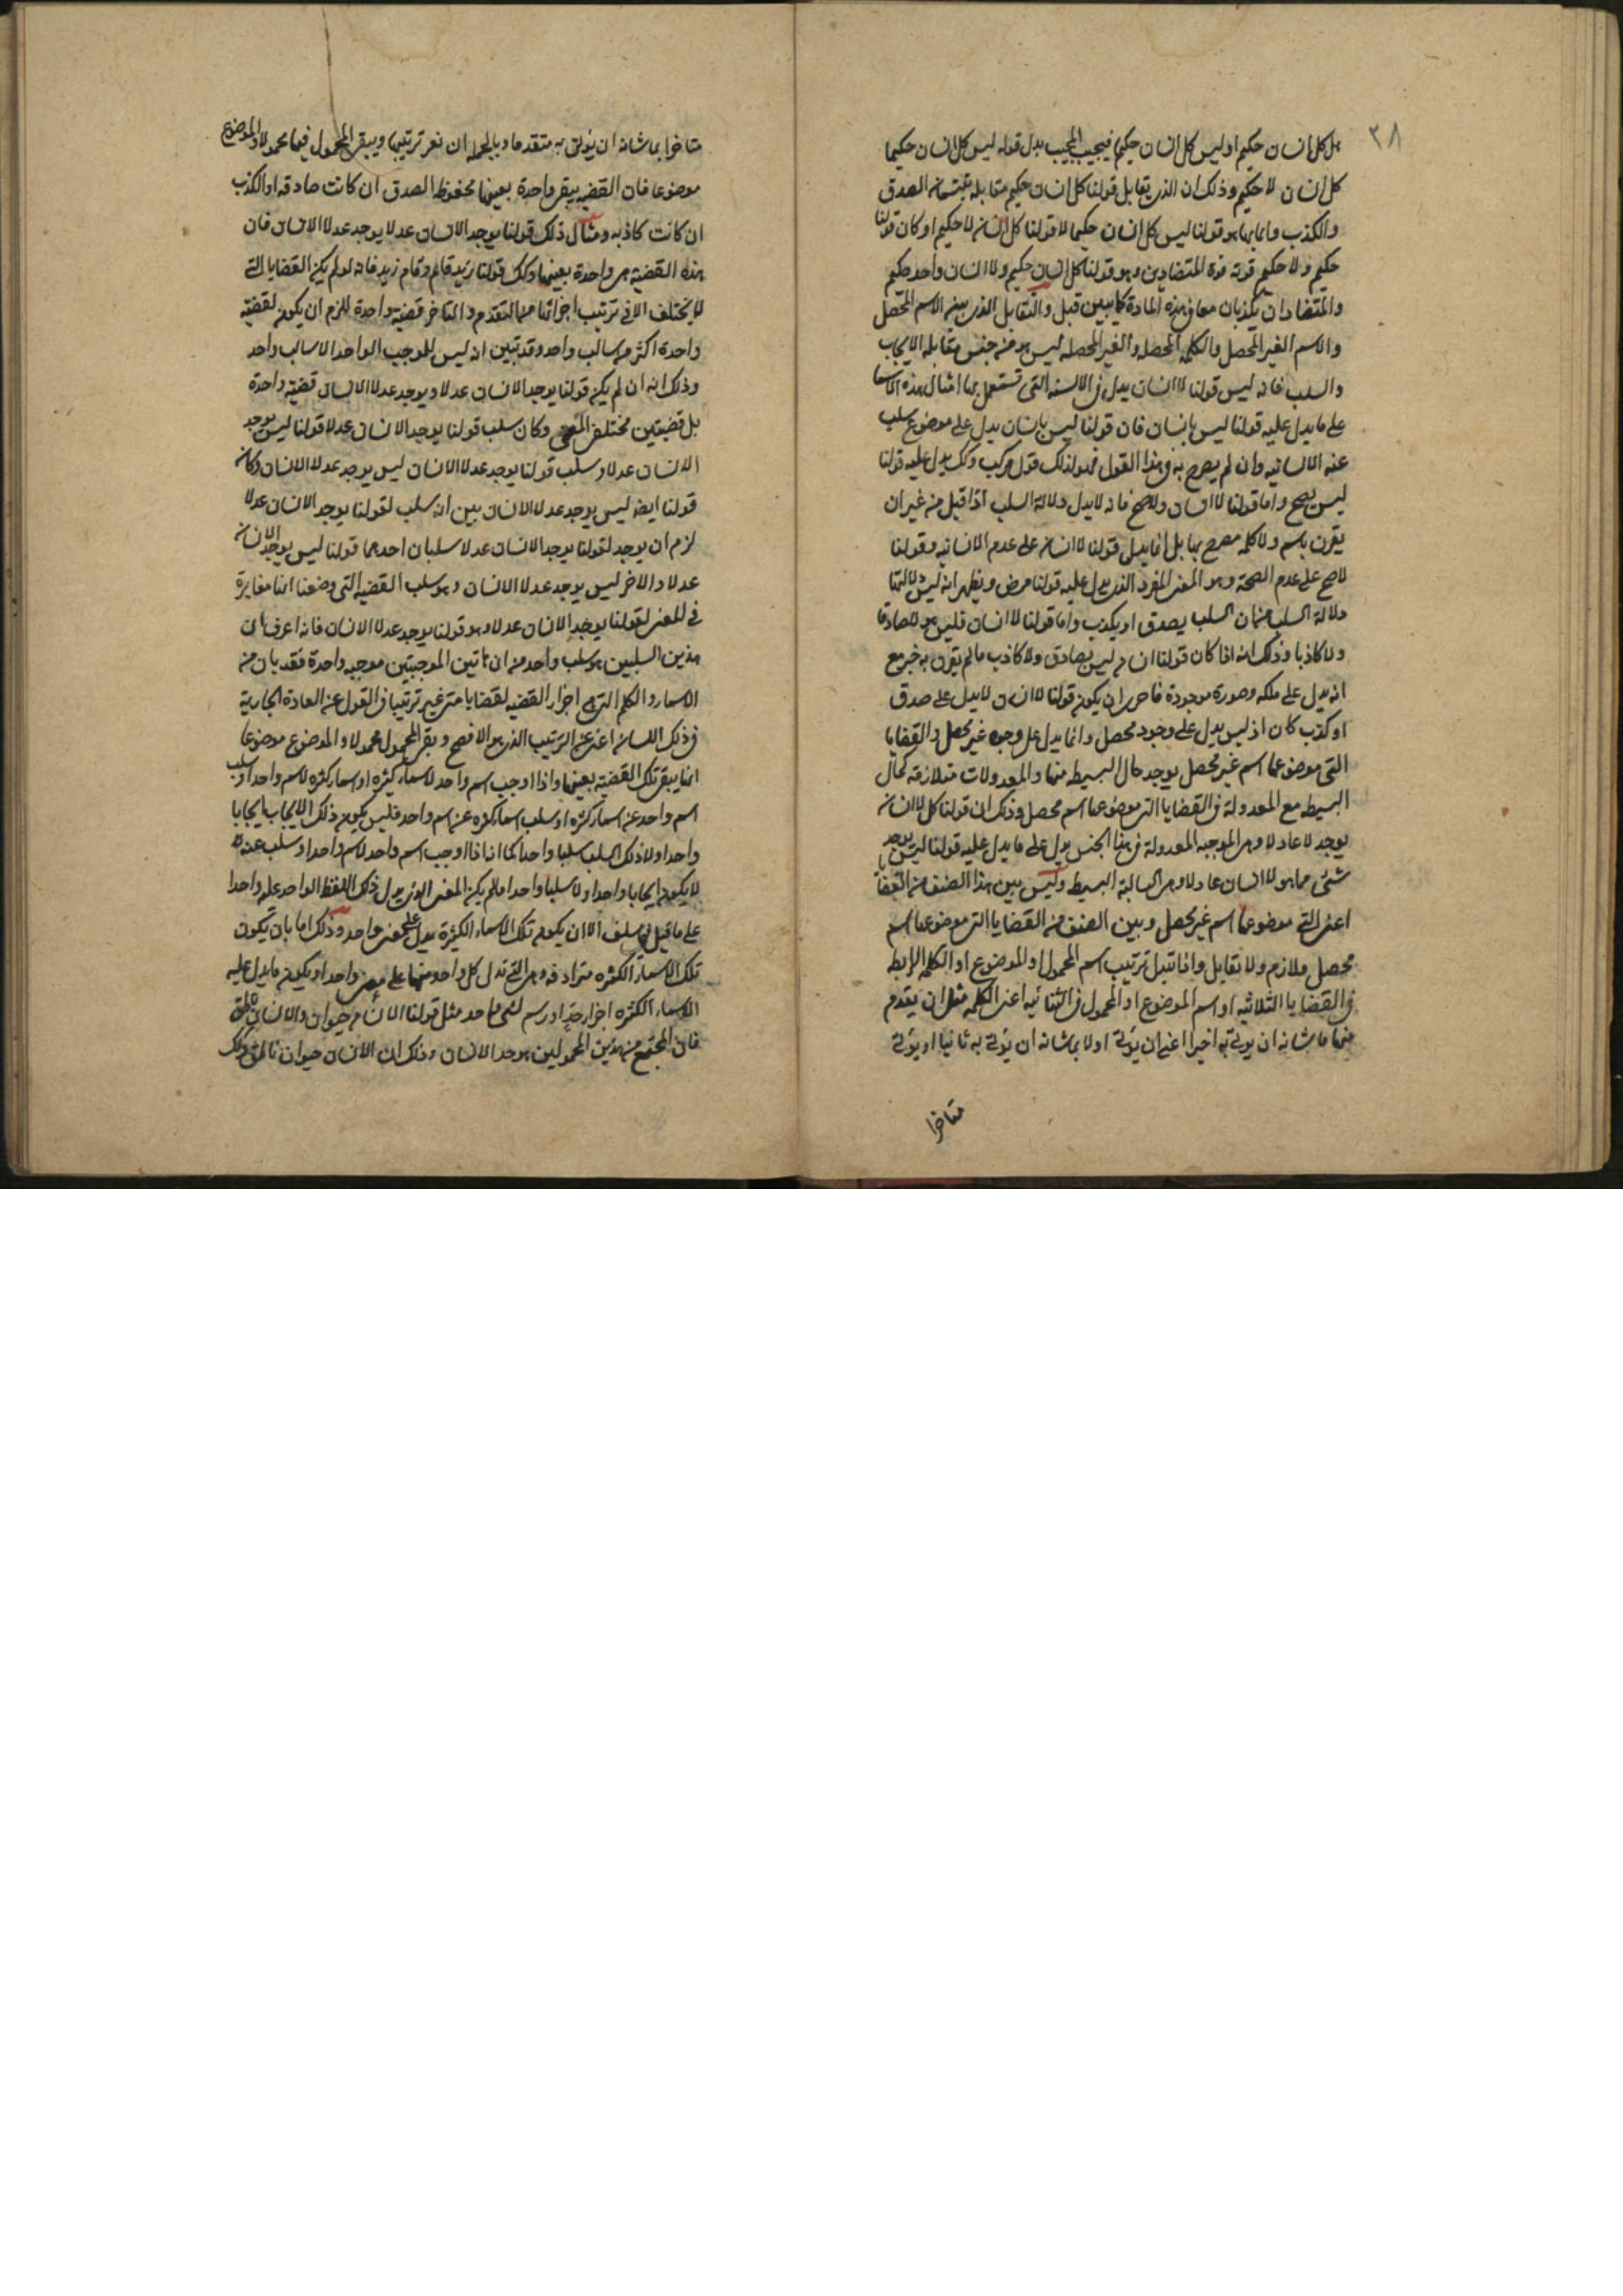 ٣٨
هل كل انسان حكيم او ليس كل انسان حكيم فيجيب المجيب بدل قوله ليس كل انسان حكيما
كل انسان لا حكيم وذلك ان الذى يقابل قولنا كل انسان حكيم مقابلة يقتسمان الصدق
والكذب دائما هو قولنا ليس كل انسان حكيما لا قولنا كل انسان لا حكيم او كان قولنا
حكيم ولا حكيم قوته قوة المتضادين وهو قولنا كل انسان حكيم ولا انسان واحد حكيم
والمتضادان يكذبان معا فى هذه المادة كما تبين قبل والتقابل الذى بين الاسم المحصل
والاسم الغير المحصل والكلمه المحصله والغير المحصله ليس هو من جنس مقابله الايجاب
والسلب فانه ليس قولنا لا انسان يدل فى الالسنه التى تستعمل بها امثال هذه الاسما
على ما يدل عليه قولنا ليس بانسان فان قولنا ليس بانسان يدل على موضوع سلب
عنه الانسانيه وان لم يصرح به فى هذا القول فهو لذلك قول مركب وكك يدل عليه قولنا
ليس يصح واما قولنا لا انسان ولا صح فانه لا يدل دلالة السلب اذا قيل من غير ان
يقرن باسم ولا كلمه مصرح بها بل انما يدل قولنا لا انسان على عدم الانسانيه وقولنا
لا صح على عدم الصحة وهو المعنى المفرد الذى يدل عليه قولنا مرض ويظهر انه ليس دلالتها
دلالة السلب من ان السلب يصدق او يكذب واما قولنا لا انسان فليس هو لا صادقا
ولا كاذبا وذلك انه اذا كان قولنا انسان ليس بصادق ولا كاذب ما لم يقرن به خبر مع
انه يدل على ملكه وصورة موجودة فاحرى ان يكون قولنا لا انسان لا يدل على صدق
او كذب كان اذ ليس يدل على وجود محصل وانما يدل على وجود غير محصل والقضايا
التى موضوعها اسم غير محصل يوجد حال البسيطه منها والمعدولات متلازمه كحال
البسيطه مع المعدولة فى القضايا التى موضوعها اسم محصل وذلك ان قولنا كل لا انسان
يوجد لا عادلا وهى الموجبه المعدولة فى هذا الجنس يدل على ما يدل عليه قولنا ليس يوجد
شئ مما هو لا انسان عادلا وهى السالبة البسيطه وليس بين هذا الصنف من القضايا
اعنى التى موضوعها اسم غير محصل وبين الصنف من القضايا التى موضوعها اسم
محصل تلازم ولا تقابل واذا تبدل ترتيب اسم المحمول او الموضوع او الكلمه الرابطه
فى القضايا الثلاثيه او اسم الموضوع او المحمول فى الثنائيه اعنى الكلمه مثل ان يقدم
منها ما شانه ان يوتى به اخيرا اعنى ان يوتى اولا بما شانه ان يوتى به ثانيا او يوتى
متاخرا
متاخرا بما شانه ان يوتى به متقدما وبالجمله ان نغير ترتيبها ويبقى المحمول فيها محمولا والموضوع
موضوعا فان القضيه يبقى واحدة بعينها محفوظه الصدق ان كانت صادقه او الكذب
ان كانت كاذبه ومثال ذلك قولنا يوجد الانسان عدلا يوجد عدلا الانسان فان
هذه القضيه هى واحدة بعينها وكك قولنا زيد قام وقام زيد فانه لو لم يكن القضايا التى
لا يختلف الا فى ترتيب اجزائها منها التقدم والتاخر قضيه واحدة للزم ان يكون لقضية
واحدة اكثر من سالب واحد وقد تبين انه ليس للموجب الواحد الا سالب واحد
وذلك انه ان لم يكن قولنا يوجد الانسان عدلا ويوجد عدلا الانسان قضيه واحدة
بل قضيتين مختلفى المعنى وكان سلب قولنا يوجد الانسان عدلا قولنا ليس يوجد
الانسان عدلا وسلب قولنا يوجد عدلا الانسان ليس يوجد عدلا الانسان وكان
قولنا ايضه ليس يوجد عدلا الانسان بين انه سلب لقولنا يوجد الانسان عدلا
لزم ان يوجد لقولنا يوجد الانسان عدلا سلبان احدهما قولنا ليس يوجد الانسان
عدلا والاخر ليس يوجد عدلا الانسان وهو سلب القضيه التى وضعنا انها مغايرة
فى المعنى لقولنا يوجد الانسان عدلا وهو قولنا يوجد عدلا الانسان فانه اعرف ان
هذين السلبين هو سلب واحد من ان هاتين الموجبتين موجبه واحدة فقد بان من
الاسماء والكلم التى هى اجزاء القضيه لقضايا متى غير ترتيبها فى القول عن العادة الجارية
فى ذلك اللسان اعنى عن الترتيب الذى هو الافصح وبقى المحمول محمولا والموضوع موضوعا
انها يبقى تلك القضيه بعينها واذا اوجب اسم واحد لاسماء كثيره او اسماء كثيره لاسم واحد او سلب
اسم واحد عن اسماء كثيره او سلب اسماء كثيره عن اسم واحد فليس يكون ذلك الايجاب ايجابا
واحدا ولا ذلك السلب سلبا واحدا كما انه اذا اوجب اسم واحد لاسم واحد او سلب عنه
لا يكون ايجابا واحدا ولا سلبا واحدا ما لم يكن المعنى الذى يدل ذلك اللفظ الواحد عليه واحدا
على ما قيل فى سلف الا ان يكون تلك الاسماء الكثيرة يدل على معنى واحد وذلك اما بان يكون
تلك الاسماء الكثيره مترادفه وهى التى تدل كل واحد منها على معنى واحد او يكون ما يدل عليه
الاسماء الكثيره اجزاء حد او رسم لشئ واحد مثل قولنا الانسان حيوان والانسان ناطق
فان المجتمع من هذين المحمولين هو حد الانسان وذلك ان الانسان حيوان ناطق وكك